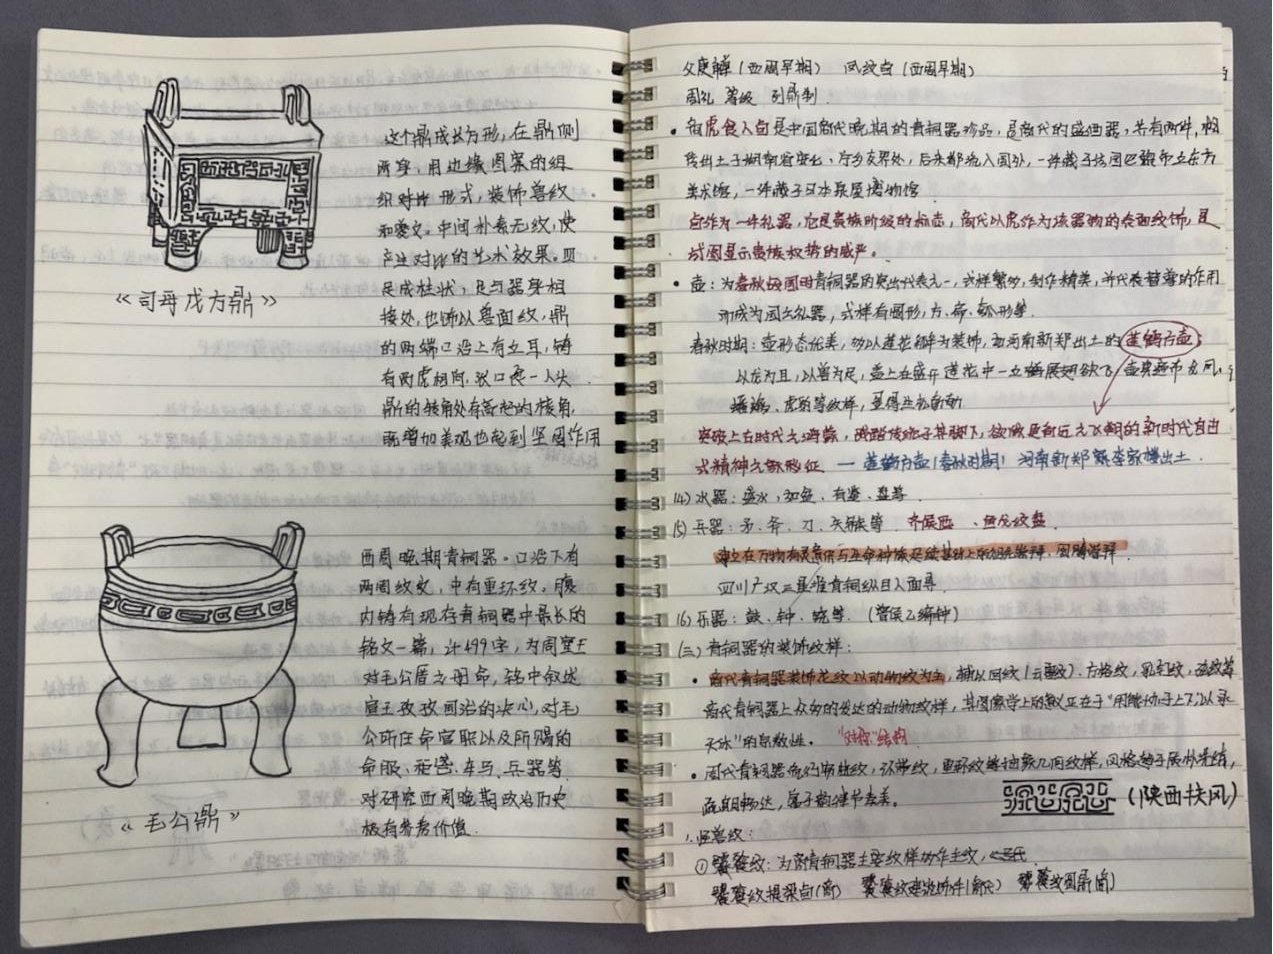 这个鼎成长方形，在鼎侧
两旁，用边缘图案的组
织对比形式，装饰兽纹
和夔文。中间朴素无纹，使
产生对比的艺术效果。四
足成柱状，足与器身相
接处，也饰以兽面纹，鼎
的两端口沿上有立耳，铸
有两虎相向，张口食一人头
鼎的转角处有高起的棱角，
既增加美观也起到坚固作用
《司母戊方鼎》
西周晚期青铜器。口沿下有
两周纹文，中有重环纹，腹
内铸有现存青铜器中最长的
铭文一篇，计499字，为周宣王
对毛公厝之册命，铭中叙述
宣王孜孜图治的决心，对毛
公所任命官职以及所赐的
命服、秬鬯、车马、兵器等
对研究西周晚期政治历史
极有参考价值.
《毛公鼎》
父庚觯（西周早期） 凤纹卣（西周早期）
周礼 等级 列鼎制.
虎食人卣是中国商代晚期的青铜器珍品，是商代的盛酒器，共有两件，相
传出土于湖南省安化、宁乡交界处，后来都流入国外，一件藏于法国巴黎市立东方
美术馆，一件藏于日本泉屋博物馆
卣作为一件礼器，它是贵族阶级的标志，商代以虎作为该器物的表面纹饰，是
试图显示贵族权势的威严。
• 壶：为春秋战国时青铜器的突出代表之一，式样繁多，制作精美，并代表替尊的作用
而成为国之礼器，式样有圆形，方、扁、瓠形等.
春秋时期：壶形态优美，多以莲花瓣为装饰，如河南新郑出土的莲鹤方壶，
以龙为耳，以兽为足，壶上在盛开莲花中一立鹤展翅欲飞，壶身遍布龙凤、
蟠螭、虎豹等纹样，显得生动新颖
突破上古时代之鸿蒙，践踏传统于其脚下，欲做更向远之飞翔的新时代自由
式精神之象形征 — 莲鹤方壶（春秋时期）河南新郑县李家楼出土.
(4) 水器：盛水，如鱼、有鉴、盘等.
(5) 兵器：矛、斧、刀、矢镞等 齐侯匜、鱼龙纹盘.
建立在万物有灵意识与生命种族延续基础上的动物崇拜、图腾崇拜.
四川广汉三星堆青铜纵目人面具.
(6) 乐器：鼓、钟、铙等.（曾侯乙编钟）
(三) 青铜器的装饰纹样：
• 商代青铜器装饰花纹以动物纹为主，辅以回纹（云雷纹）、方格纹，乳钉纹，弦纹等
商代青铜器上众多的发达的动物纹样，其图像学上的意义正在于“用能协于上下，以承
天休”的宗教性。 “对称”结构
• 周代青铜器流行窃曲纹，环带纹，重环纹等抽象几何纹样，风格趋于质朴洗练，
疏朗畅达，富于韵律节奏美。
（陕西扶风）
1. 怪兽纹：
① 饕餮纹：为商青铜器主要纹样均作主纹，
饕餮纹提梁卣（商） 饕餮纹建筑饰件（商） 饕餮纹圆鼎（商）